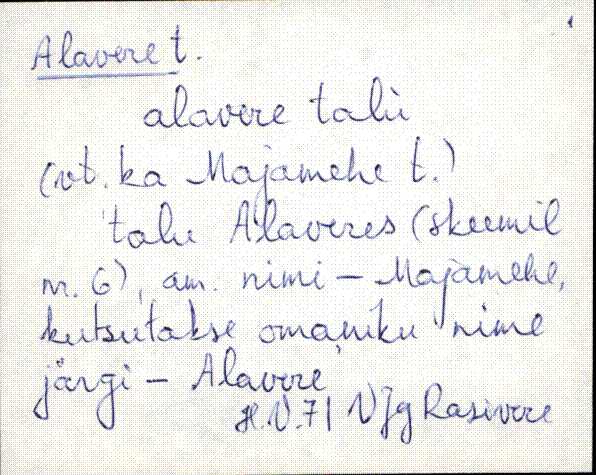 Alavere t.
alavere talù
(vt. ka Majamehe t.)
talu Alaveres (skeemil
nr. 6), am. nimi – Majamehe,
kutsutakse omaniku nime
järgi – Alavere
H.V. 71 VJg Rasivere